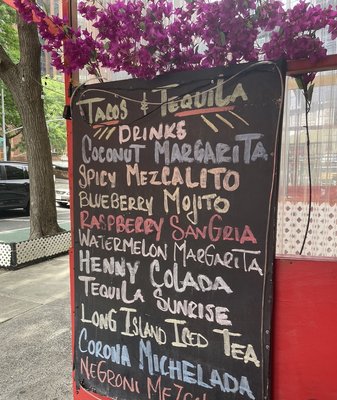 TACOS & TEQUILA
DRINKS
COCONUT MARGARITA
SPICY MEZCALITO
BLUEBERRY MOJITO
RASPBERRY SANGRIA
WATERMELON MARGARITA
HENNY COLADA
TEQUILA SUNRISE
LONG ISLAND ICED TEA
CORONA MICHELADA
NEGRONI MEZCAL